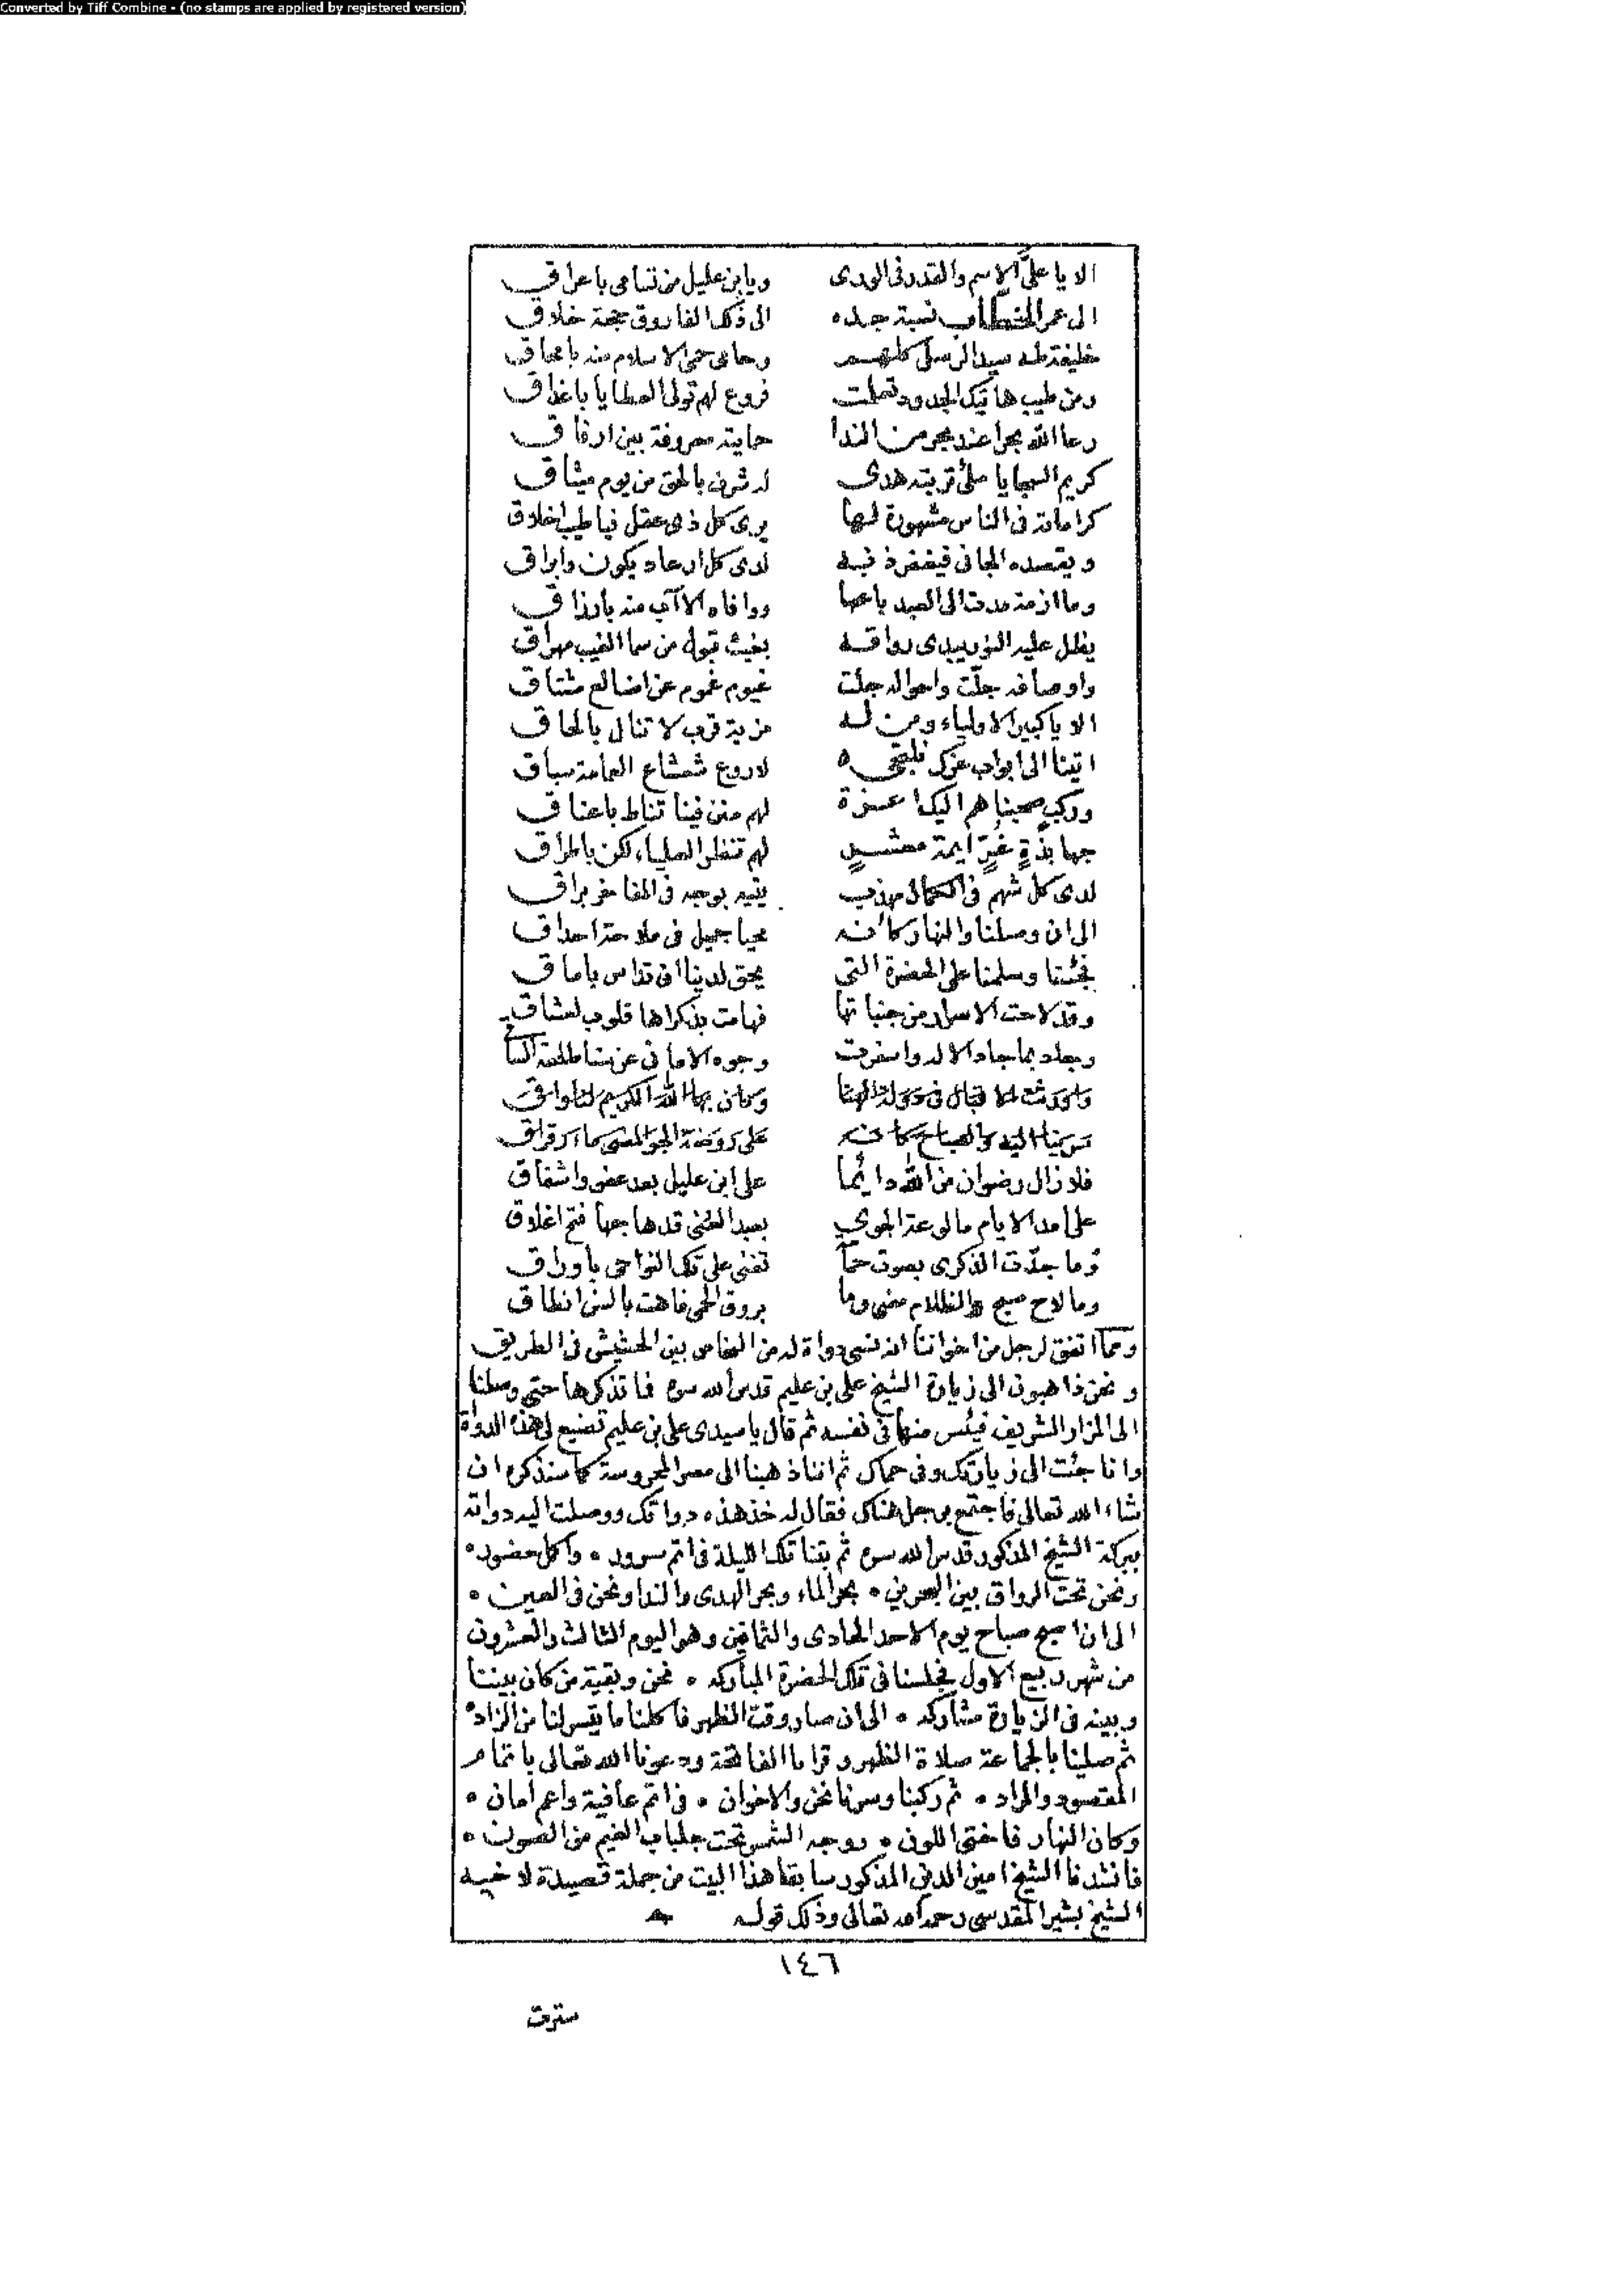 Converted by Tiff Combine - (no stamps are applied by registered version)
الا يا علىَّ الاسم والقدر فى الورى ويا بن عليل من تسامى باعراق
الى عمر الخطاب نسبة جده الى ذلك الفاروق حجة خلاق
خليفة طه سيد الرسل كلهم وحامى حمى الاسلام منه
ومن طيب هاتيك الجدود فروع لهم تولى العطايا باغداق
رعا الله بحرا عند بحر من الندا حمايته معروفة بين ارفاق
كريم السجايا ملئ تربته هدى له شرف بالحق من يوم ميثاق
كراماته فى الناس مشهورة لها يرى كل ذى عقل فيا طيب اخلاق
ويقصده الجانى فيغفر ذنبه لدى كل يكون وابراق
وما ازمة مدت الى العبد باعها ووافاه الا آب منه بارزاق
يظل عليه النور يبدى رواقه بغيث قبول من سما الغيب مهراق
واوصافه جلّت واحواله جلت غيوم غموم عن اضالع مشتاق
الا يا كبير الاولياء ومن له مزية قرب لا تنال بالحاق
اتينا الى ابواب عزك نلتجى لاروع شعشاع العمامة سباق
وركب صحبناهم اليك اعزة لهم منن فينا تناط باعناق
جهابذةٍ غُرٍّ ايمة معشرٍ لهم تنظر العلياء لكن باطراق
لدى كل شهم فى الكمال مهذب يتيه بوجه فى المفاخر براق
الى ان وصلنا والنهار كانه محيا جميل فى ملاحة احداق
فجئنا وسلمنا على الحضرة التى يحق لدينا ان تداس باماق
وقد لاحت الاسرار من جنباتها فهامت بذكراها قلوب لعشاق
وجاد بما جاد الاله واسفرت وجوه الامانى عن سنا طلعة
الاقبال فى دولة الهنا وكان بها الله الكريم لنا واقى
سرينا اليه والصباح كانه على روضة الجو ماء رقراق
فلا زال رضوان من الله دائما على ابن عليل بعد عفو واشفاق
على امد الايام ما لوعة الجوى بعبد الغنى قد هاجها فتح اغلاق
وما جدّت الذكرى بصوت حما تغنى على تلك النواحى باوراق
وما لاح صبح والظلام مضى وما بروق الحمى فاهت بالسن انطاق
ومما اتفق لرجل من اخواننا انه نسى دواة له من النحاس بين الحشيش فى الطريق
ونحن ذاهبون الى زيارة الشيخ على بن عليم قدس الله سره فما تذكرها حتى وصلنا
الى المزار الشريف فيئس منها فى نفسه ثم قال يا سيدى على بن عليم تضيع لى هذه الدواة
وانا جئت الى زيارتك وفى حماك ثم اننا ذهبنا الى مصر المحروسة كما سنذكره ان
شاء الله تعالى فاجتمع برجل هناك فقال له خذ هذه دواتك ووصلت اليه دواته
ببركة الشيخ المذكور قدس الله سره ثم بتنا تلك الليلة فى اتم سرور ۰ واكمل حضور ۰
ونحن تحت الرواق بين البحرين ۰ بحر الماء وبحر الهدى والندا ونحن فى العين ۰
الى ان اصبح صباح يوم الاحد الحادى والثمانين وهو اليوم الثالث والعشرون
من شهر ربيع الاول فجلسنا فى تلك الحضرة المباركه ۰ نحن وبقية من كان بيننا
وبينه فى الزيارة مشاركه ۰ الى ان صار وقت الظهر فاكلنا ما تيسر لنا من الزاد ۰
ثم صلينا بالجماعة صلاة الظهر وقرانا الفاتحة ودعونا الله تعالى باتمام
المقصود والمراد ۰ ثم ركبنا وسرنا نحن والاخوان ۰ فى اتم عافية واعم امان ۰
وكان النهار فاختى اللون ۰ ووجه الشمس تحت جلباب الغيم من الصون ۰
فانشدنا الشيخ امين الدين المذكور سابقا هذا البيت من جملة قصيدة لاخيه
الشيخ بشير المقدسى رحمه الله تعالى وذلك قوله
١٤٦
سترت